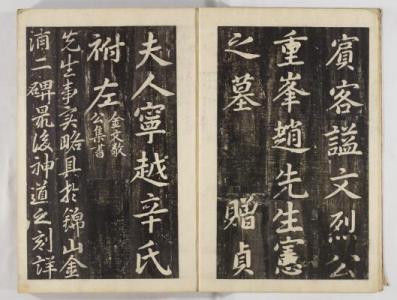 賓客謚文烈公
重峯趙先生憲
之墓 贈貞
夫人寧越辛氏
祔左
金文敬
公集書
先生事实略具於錦山金
浦二碑最後神道之刻詳